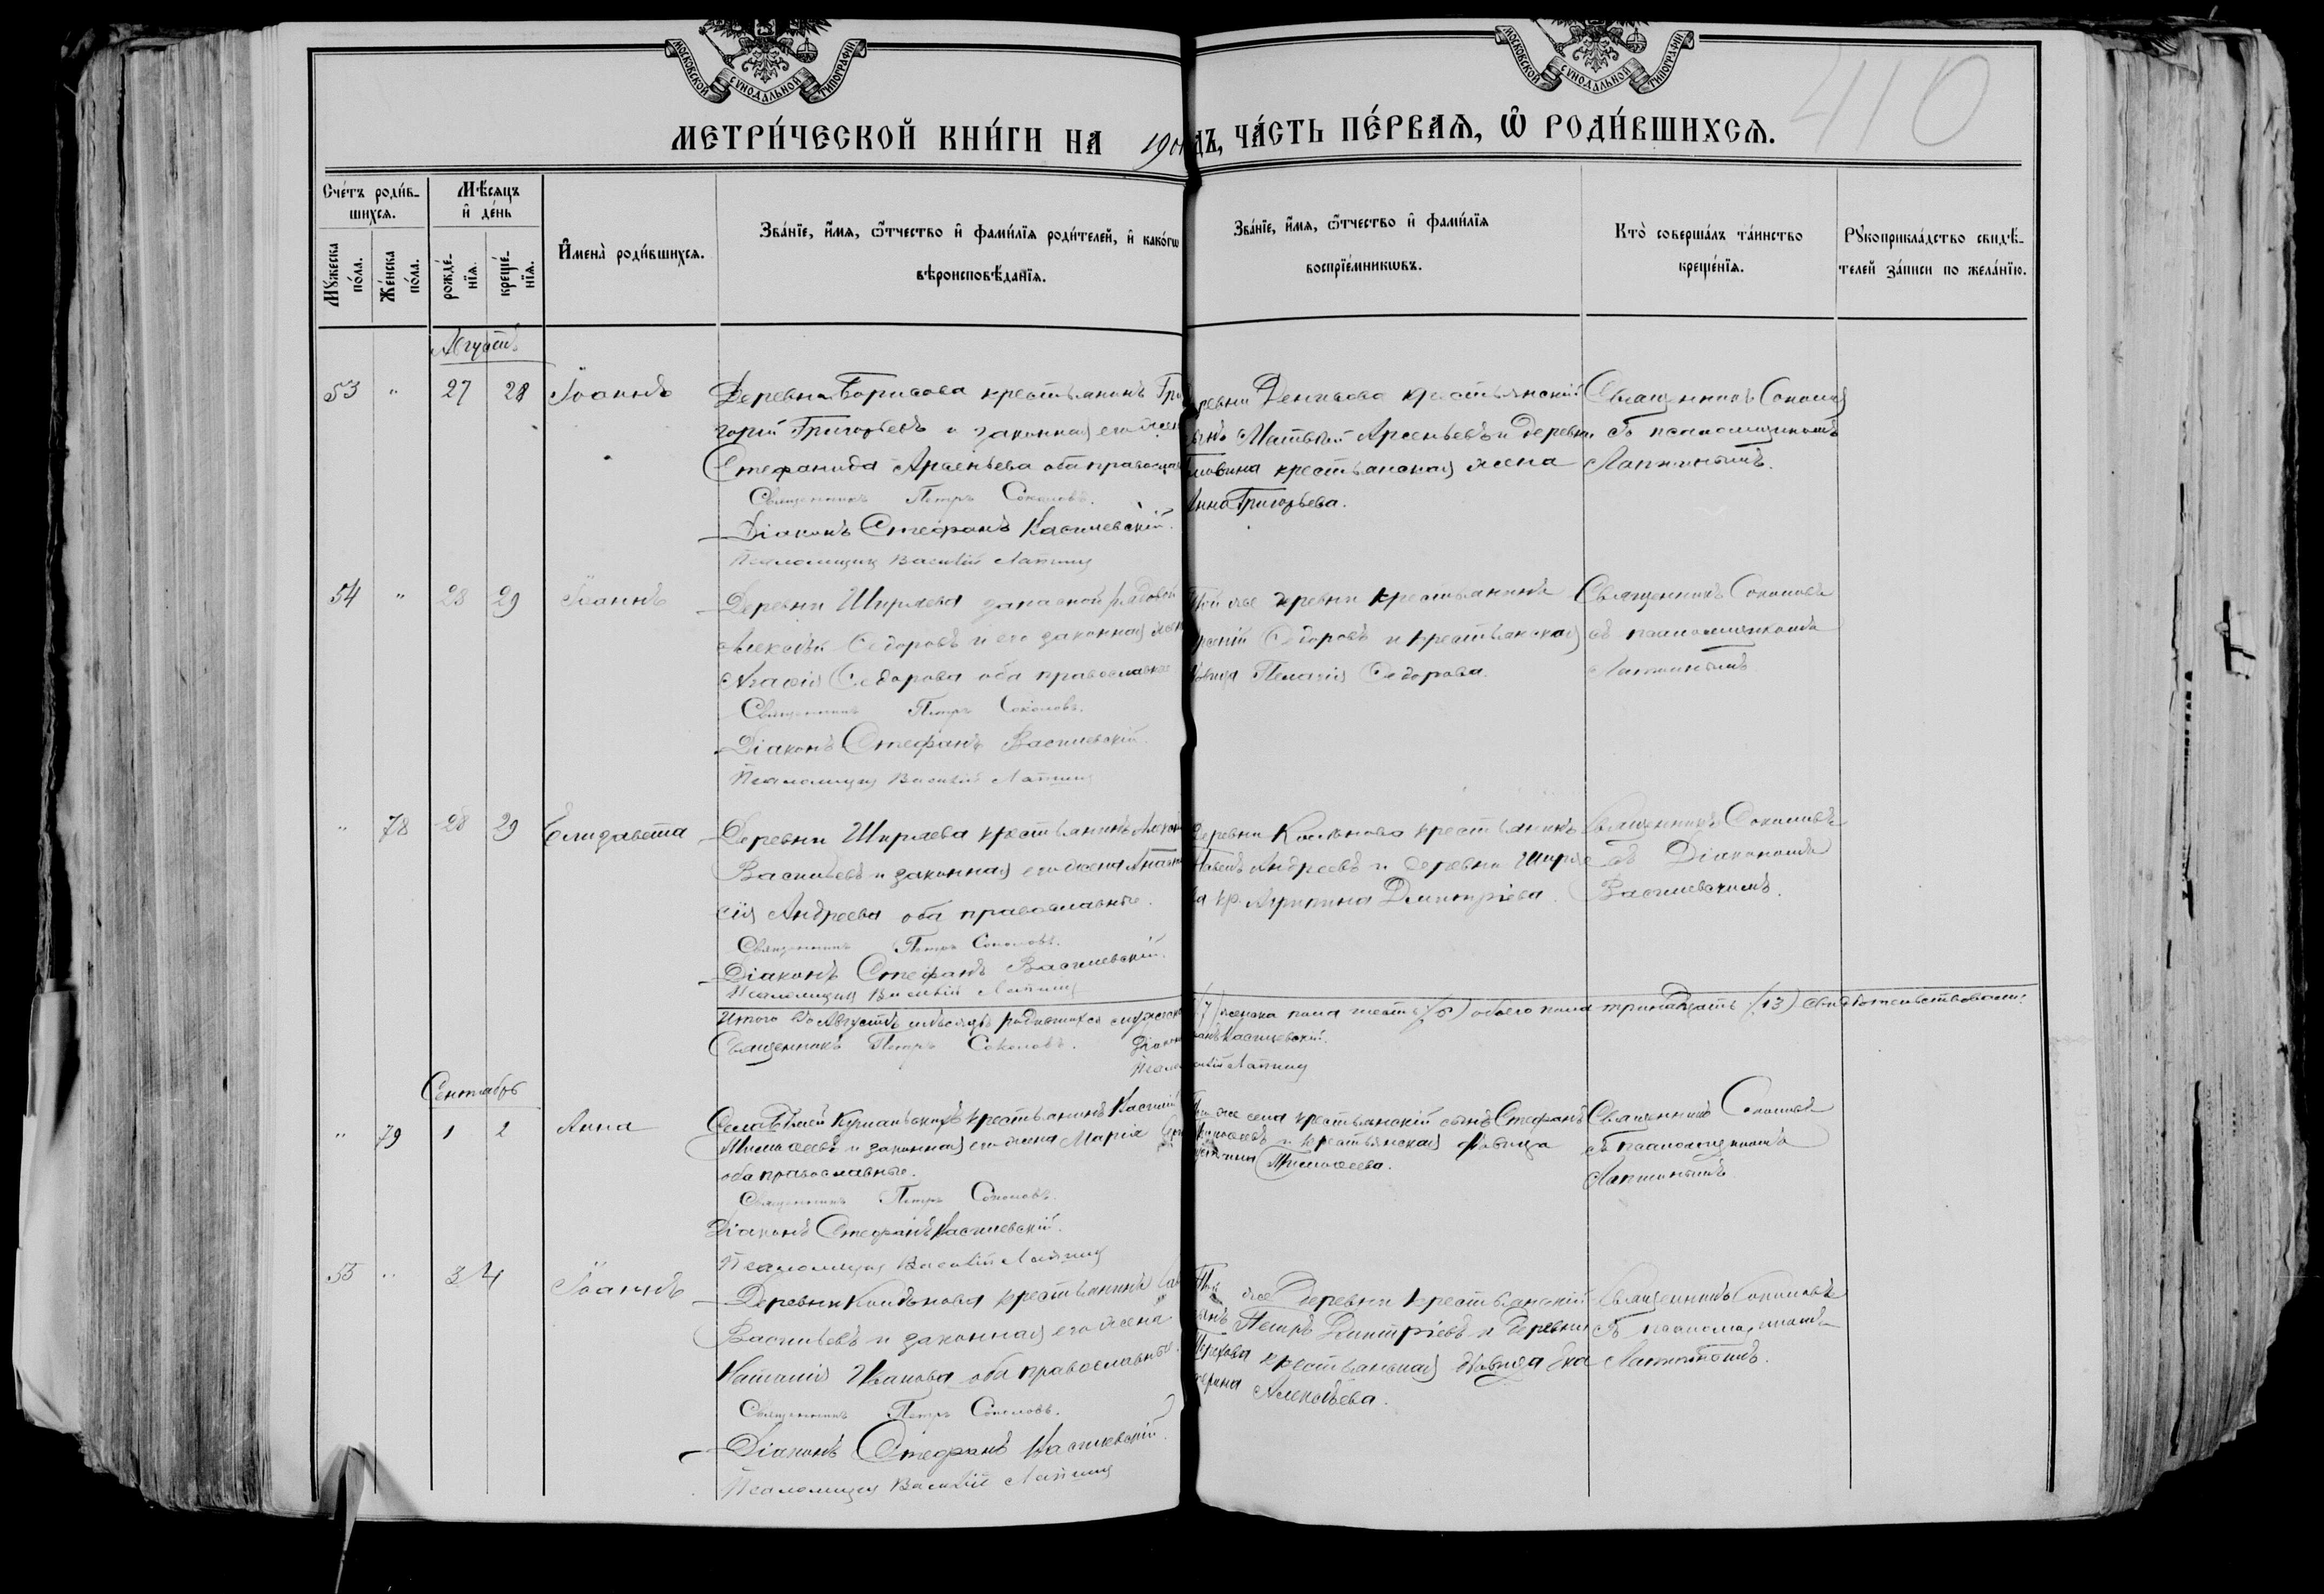 МОСКОВСКОЙ СѴНОДАЛЬНОЙ ТИПОГРАФІИ
МОСКОВСКОЙ СѴНОДАЛЬНОЙ ТИПОГРАФІИ
410
МЕТРИ́ЧЕСКОЙ КНИ́ГИ НА 190 ДЪ, ЧА́СТЬ ПЕ́РВАЯ, Ѡ РОДИ́ВШИХСѦ.
Сче́тъ роди́в-
шихсѧ.
Мꙋ́жеска по́ла.
Же́нска по́ла.
Мѣ́сѧцъ
и҆ де́нь
рожде́-
нїѧ.
креще́-
нїѧ.
И҆мена̀ роди́вшихсѧ.
Зва́нїе, и҆́мѧ, ѻ҆́тчество и҆ фами́лїѧ роди́телей, и҆ како́гѡ
вѣроисповѣ́данїѧ.
Зва́нїе, и҆́мѧ, ѻ҆́тчество и҆ фами́лїѧ
воспрїе́мникѡвъ.
Кто̀ соверша́лъ та́инство
креще́нїѧ.
Рꙋкоприкла́дство свидѣ́-
телей за́писи по жела́нїю.
Августъ
53 " 27 28 Іоаннъ
Деревни Борисова крестьянинъ Гри
горій Григорьевъ и законная его жен
Стефанида Арсеньева оба православ
Священникъ Петръ Соколовъ.
Діаконъ Стефанъ Василевскій.
Псаломщикъ Василій Лапшинъ
ревни Деньково крестьянскій
ынъ Матвей Арсеньевъ и деревни
крестьянская жена
Анна Григорьева.
Священникъ Соколовъ
съ псаломщикомъ
Лапшинымъ.
54 " 28 29 Іоаннъ
Деревни Ширяева запасной рядовой
Алексѣй Седоровъ и его законная жен
Агафія Седорова оба православные
Священникъ Петръ Соколовъ.
Діаконъ Стефанъ Василевскій.
Псаломщикъ Василій Лапшинъ
Той же деревни крестьянинъ
Седоровъ и крестьянская
дѣвица Пелагія Седорова.
Священникъ Соколовъ
съ псаломщикомъ
Лапшинымъ.
" 78 28 29 Елизавета
Деревни Ширяева крестьянинъ
Васильевъ и законная его жена Анаста
сія Андреева оба православные.
Священникъ Петръ Соколовъ.
Діаконъ Стефанъ Василевскій.
Псаломщикъ Василій Лапшинъ
Деревни крестьянинъ
Павелъ Андреевъ и деревни Ширяе
ва кр. Агрипина Димитріева.
Священникъ Соколовъ
съ Діакономъ
Василевскимъ.
Итого въ Августѣ мѣсяцѣ родившихся мужеска (7) женска пола шесть (6) обоего пола тринадцать (13) свидѣтельствовали:
Священникъ Петръ Соколовъ. Діаконъ Василевскій.
Псаломщикъ Василій Лапшинъ
Сентябрь
" 79 1 2 Анна
Села крестьянинъ Василій
Тимоѳеевъ и законная его жена Марія
оба православные.
Священникъ Петръ Соколовъ.
Діаконъ Стефанъ Василевскій.
Псаломщикъ Василій Лапшинъ
Того же села крестьянскій сынъ Стефанъ
и крестьянская дѣвица
Тимоѳеева.
Священникъ Соколовъ
съ псаломщикомъ
Лапшинымъ.
55 " 3 4 Іоаннъ
Деревни крестьянинъ
Васильевъ и законная его жена
Наталія Иванова оба православные.
Священникъ Петръ Соколовъ.
Діаконъ Стефанъ Василевскій.
Псаломщикъ Василій Лапшинъ
Той же деревни крестьянскій
сынъ Петръ Димитріевъ и деревни
крестьянская дѣвица Ека
терина Алексѣева.
Священникъ Соколовъ
съ псаломщикомъ
Лапшинымъ.